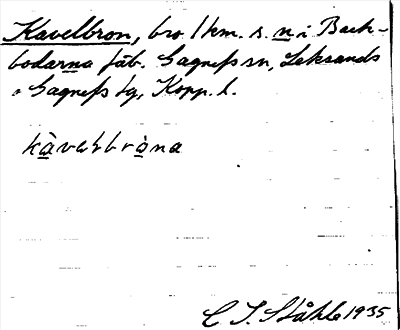 Kavelbron, bro 1 km. s. n i Back-
bodarna fäb. Gagnefs sn, Leksands
o Gagnefs tg, Kopp. l.
kàvaḷbròna
C. I. Ståhle 1935